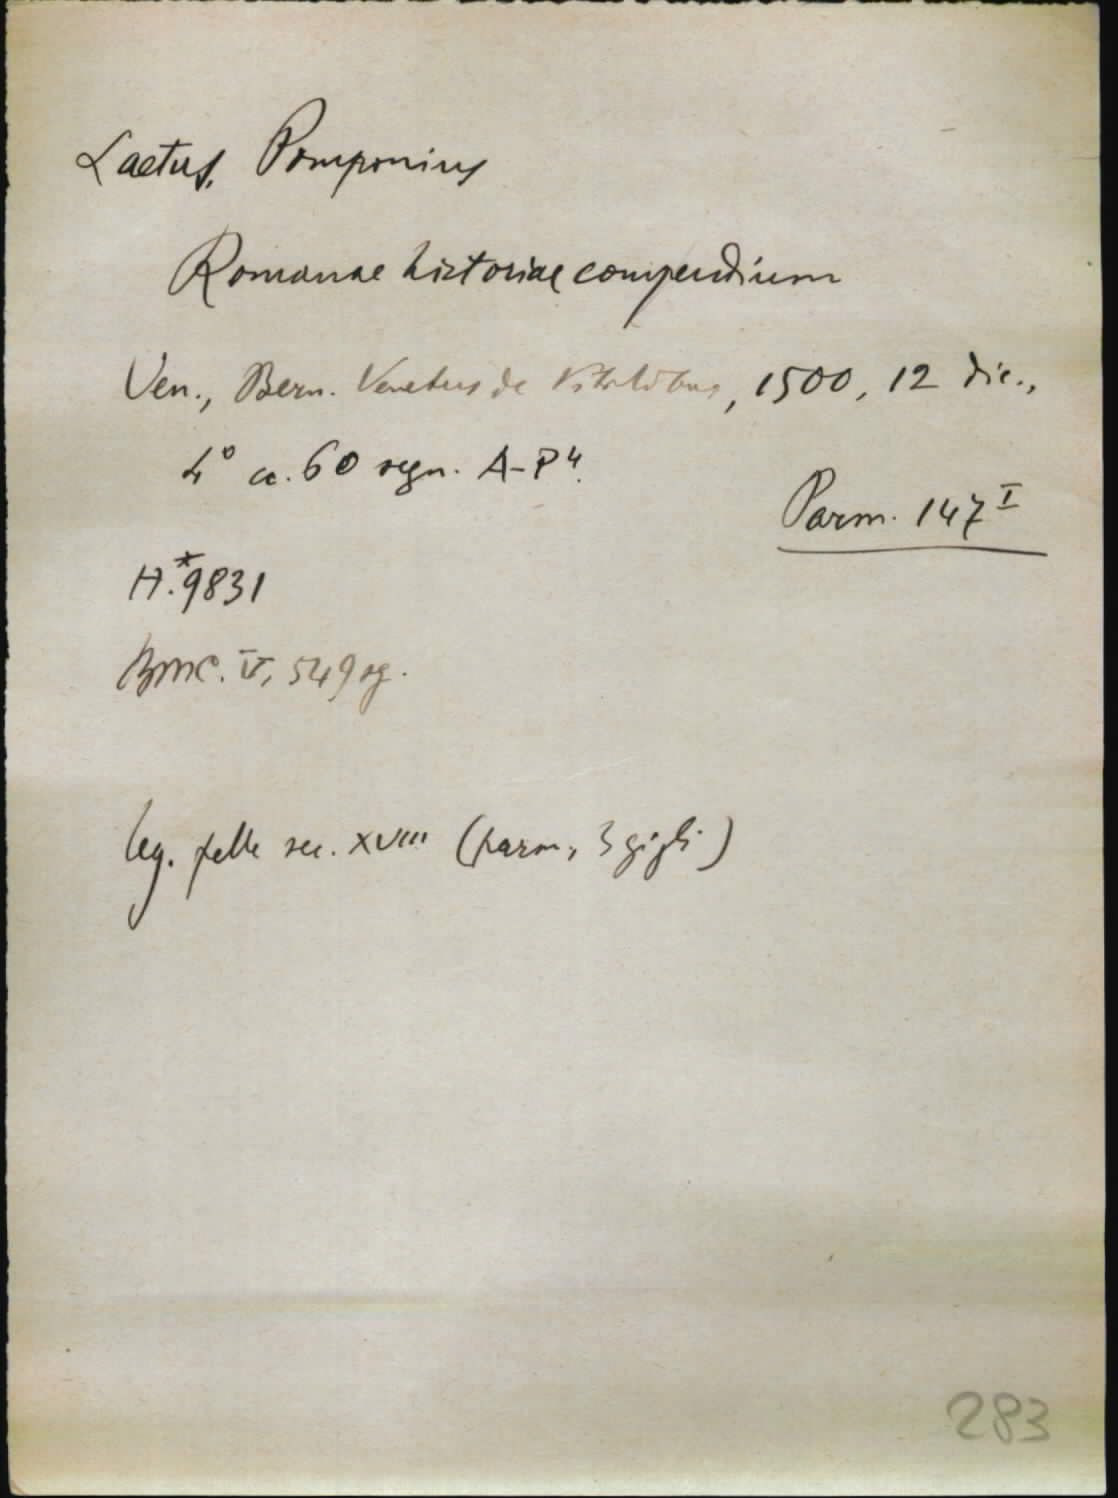 Laetus, Pomponius
Romanae historiae compendium
Ven., Bern. Venetus de Vitalibus, 1500, 12 dic.,
4° cc. 60 segn. A-P⁴.
Parm. 147ᴵ
H.*9831
BMC. V, 549 sg.
leg. pelle sec. XVIII (parm., 3 gigli)
283